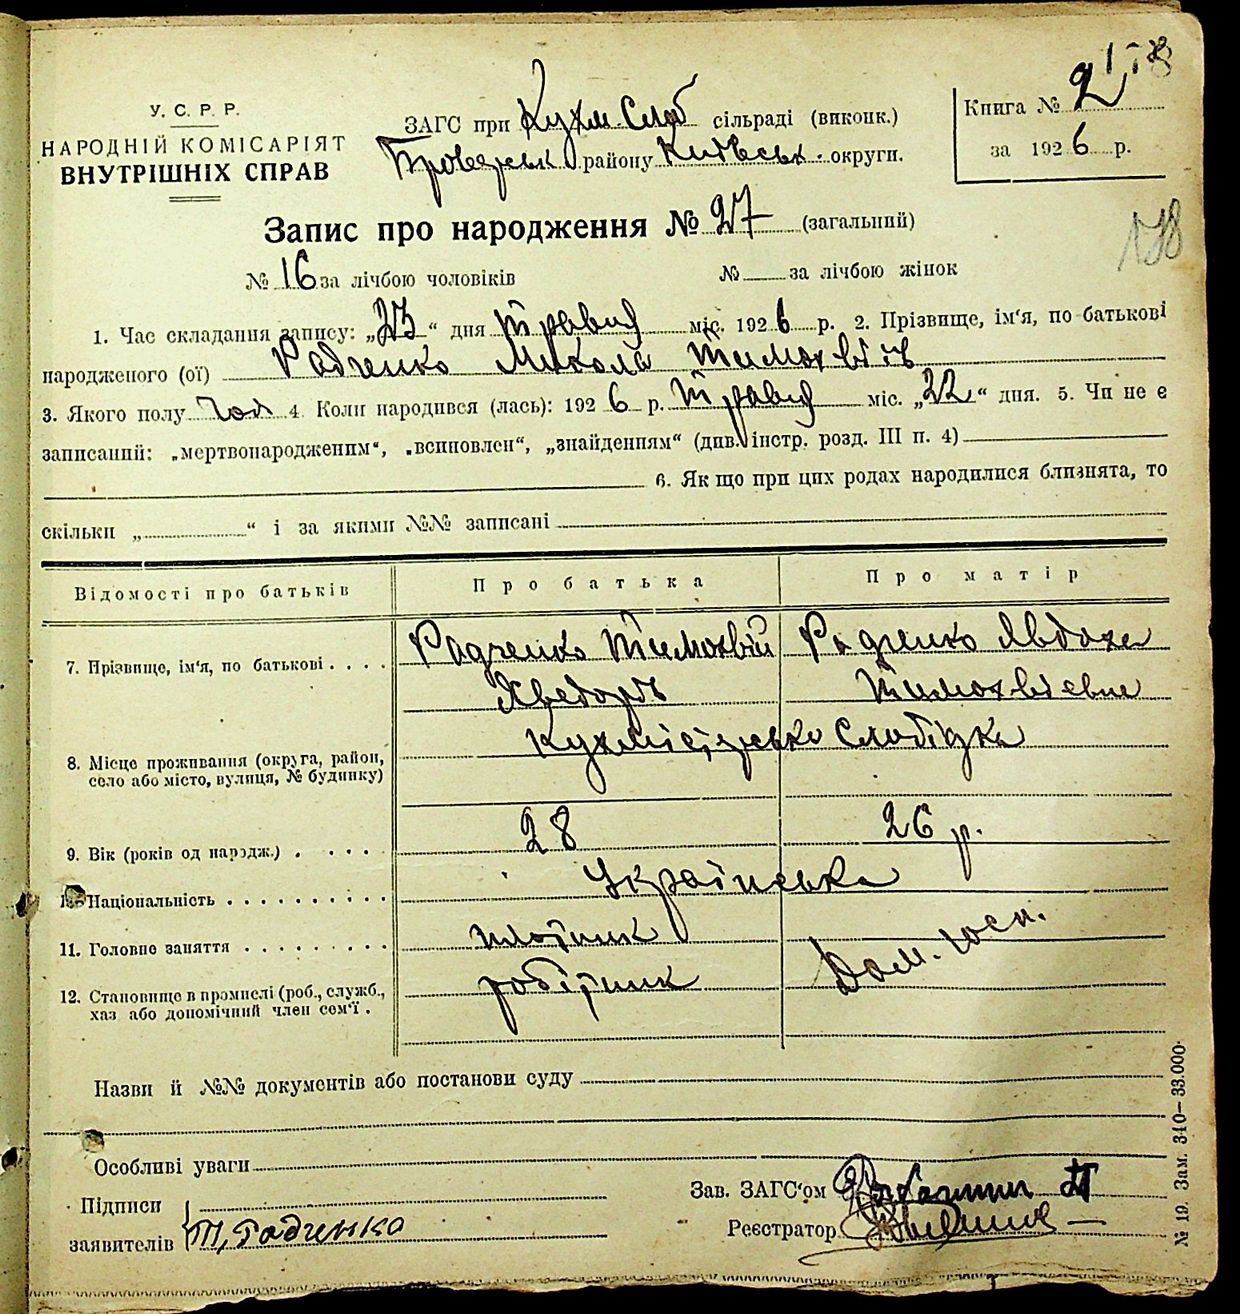 178
У. С. Р. Р.
НАРОДНІЙ КОМІСАРІЯТ
ВНУТРІШНІХ СПРАВ
ЗАГС при Кухм. Слоб сільраді (виконк.)
Броварськ району Київськ. округи.
Книга № 2
за 1926 р.
Запис про народження № 27 (загальний)
178
№ 16 за лічбою чоловіків № за лічбою жінок
1. Час складання запису: „23“ дня травня міс. 1926 р. 2. Прізвище, ім'я, по батькові
народженого (ої) Радченко Микола Тимохвіїв
3. Якого полу чол 4. Коли народився (лась): 1926 р. травня міс. „22“ дня. 5. Чи не є
записаний: „мертвонародженим“, „всиновлен“, „знайденням“ (див. інстр. розд. III п. 4)
6. Як що при цих родах народилися близнята, то
скільки „ “ і за якими №№ записані
Відомості про батьків Про батька Про матір
7. Прізвище, ім'я, по батькові . . . . Радченко Тимохвій Радченко Явдоха
Хведоръ Тимохвіевна
8. Місце проживання (округа, район,
село або місто, вулиця, № будинку)
Кухмістерська Слобідка
9. Вік (років од народж.) . . . . . 28 26 р.
10. Національність . . . . . . . . . . Українська
11. Головне заняття . . . . . . . . . плотник Дом. госп.
12. Становище в промислі (роб., служб.,
хаз або допомічний член сем'ї .
робітник
Назви й №№ документів або постанови суду
Особливі уваги
Підписи
заявителів Т, Радченко
Зав. ЗАГС'ом
Реєстратор
№ 19. Зам. 340—33.000.